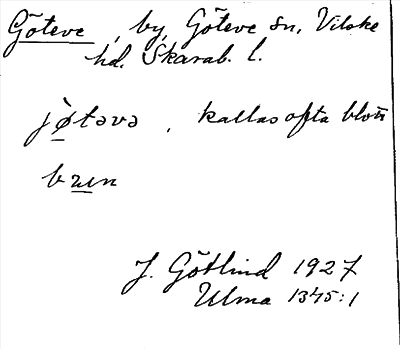 Göteve, by, Göteve sn, Vilske
hd. Skarab. l.
jø̀təvə, kallas ofta blott
bʉen
J. Götlind 1927
Ulma 1345:1